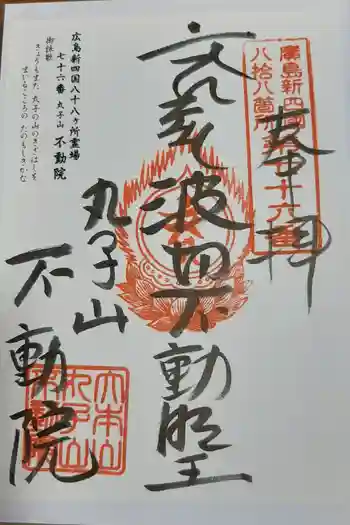 奉拝
廣島新四国
八拾八箇所第七十六番
波切不動明王
丸子山
不動院
広島新四国八十八ヶ所霊場
七十六番 丸子山 不動院
御詠歌
きょうもまた 丸子の山のきざはしを
まじるこころの たのもしきかな